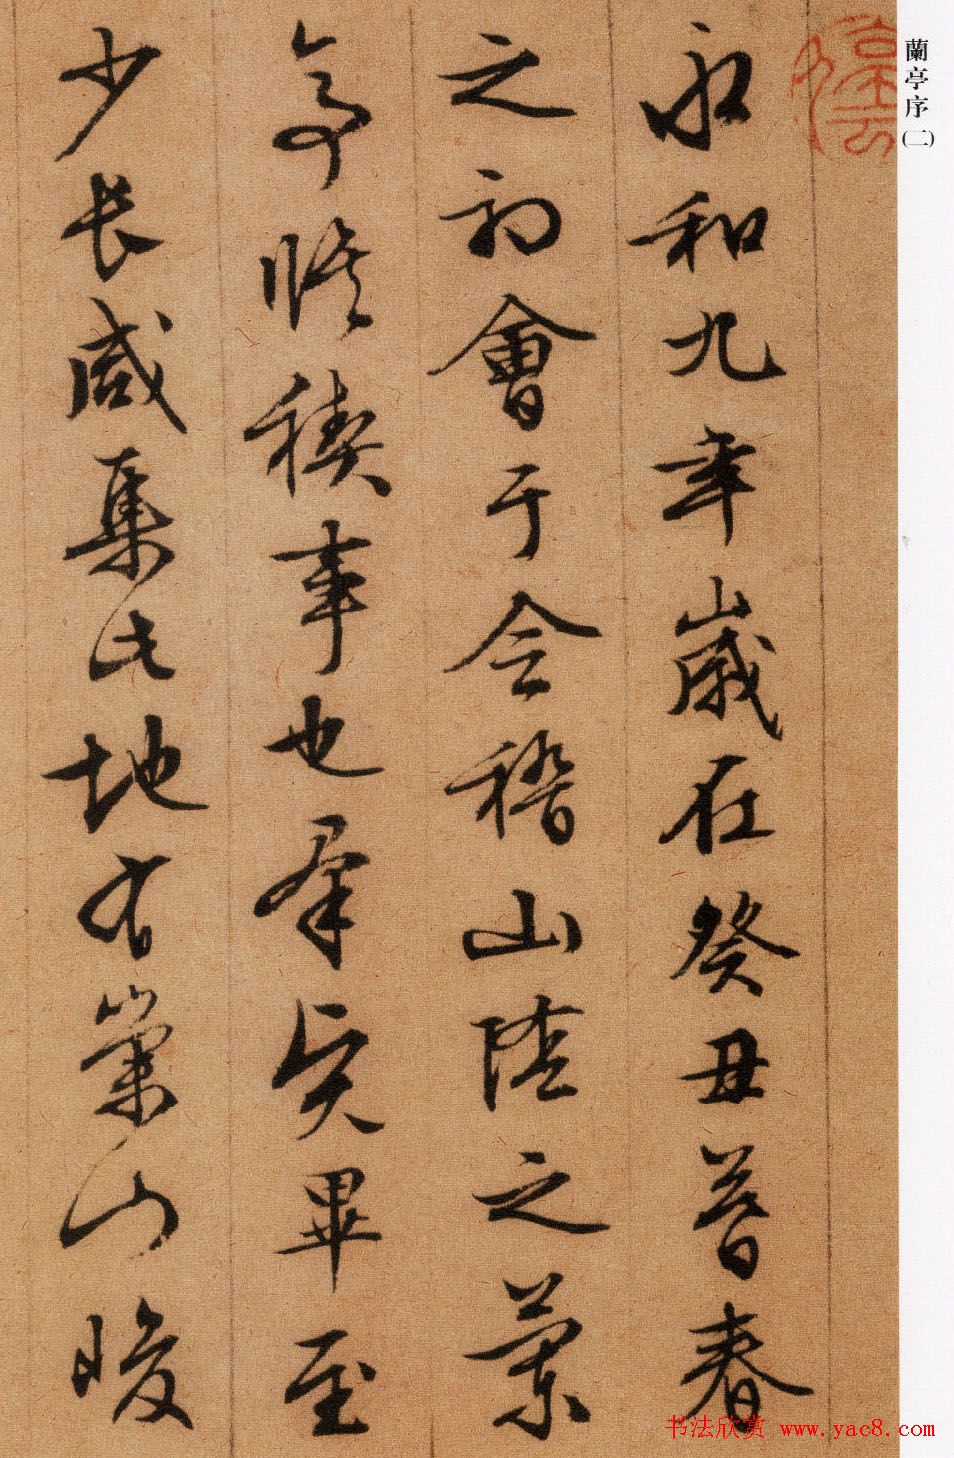 蘭亭序(二)
永和九年歲在癸丑暮春
之初會于会稽山陰之蘭
亭脩禊事也羣賢畢至
少長咸集此地有崇山峻
书法欣赏 www.yac8.com